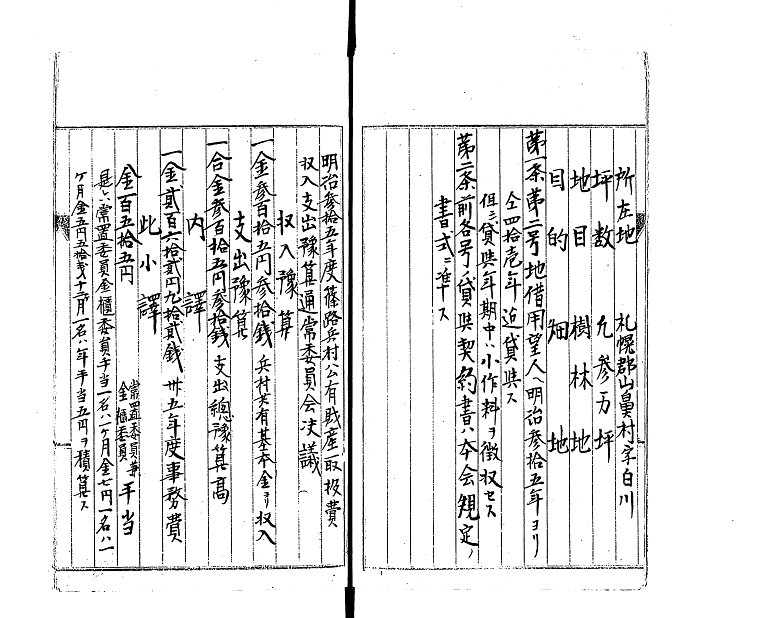 所在地　札幌郡山鼻村字白川
坪数　凡参万坪
地目　樹林地
目的　畑地
第一条第二号地借用望人ヘ明治参拾五年ヨリ
仝四拾壱年迄貸與ス
但シ貸與年期中ハ小作料ヲ徴収セス
第二条前各号ノ貸與契約書ハ本会規定ノ
書式ニ準ス
明治参拾五年度篠路兵村公有財産取扱費
収入支出豫算通常委員会決議
収入豫算
一金参百拾五円参拾銭　兵村共有基本金ヨリ収入
支出豫算
一合金参百拾五円参拾銭　支出總豫算高
内譯
一金貳百六拾貳円九拾貳銭　卅五年度事務費
此小譯
金百五拾五円　常置委員兼金櫃委員手当
是ハ常置委員金櫃委員手当一名ハ一ヶ月金七円一名ハ一
ヶ月金五円五拾銭十二ヶ月一名ハ年手当五円ヲ積算ス